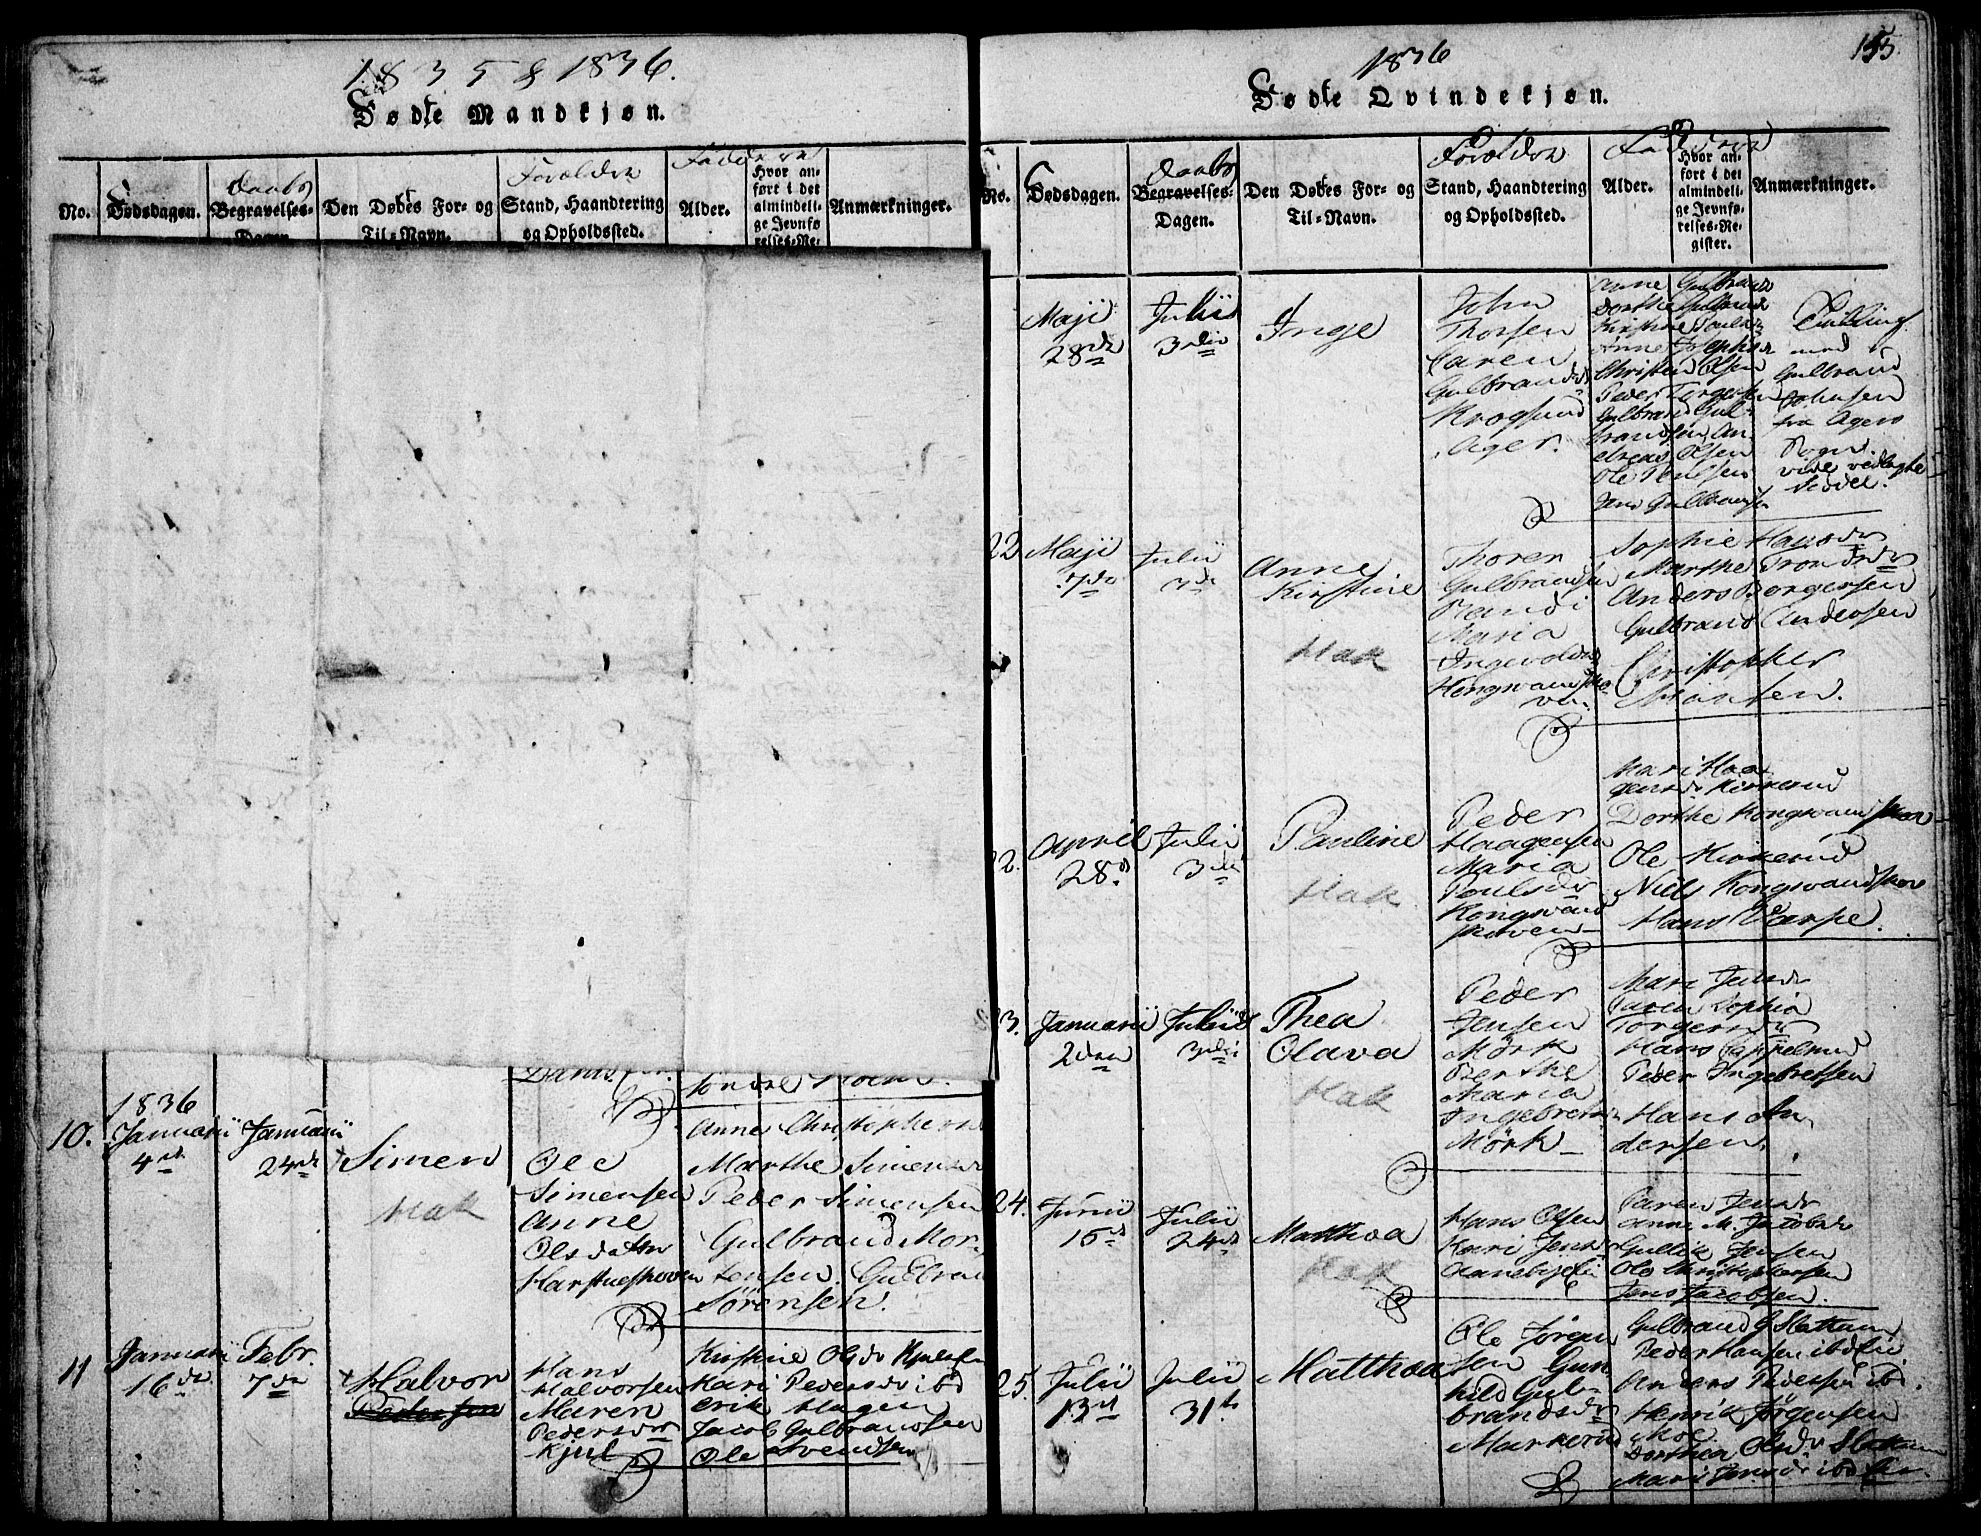 1835 & 1836.
Fødte Mandkjøn.
No.
Dødsdagen.
Daabs
Begravelses-
Dagen
Den Døbtes For- og
Til-Navn.
Forældre
Stand, Haandtering
og Opholdssted.
Faddere
Alder.
Hvor an-
ført i det
almindeli-
ge Jevnfø
relses-Re-
Anmærkninger.
1836
10.
Januarii
4de
Januarii
24de
Simen
Hak
Ole
Simensen
Anne
Olsdattr
Harstueskoven
Anne Christophersd
Marthe Simensd
Peder Simensen
Gulbrand Mor-
tensen. Gulbran
Sørensen.
11
Januarii
16de
Febr.
7de
Halvor
Pedersen
Hans
Halvorsen
Maren
Pedersdr
Kjul
Kirstine Olsdr
Kari Pedersdr ibd
Erik Hagen
Jacob Gulbrandsen
Ole Svendsen
1836
155.
Fødte Qvindekjøn.
No.
Dødsdagen.
Daabs
Begravelses-
Dagen.
Den Døbtes For- og
Til-Navn.
Forældre
Stand, Haandtering
og Opholdssted.
Faddere
Alder.
Hvor an-
ført i det
almindeli-
ge Jevnfø-
relses-Re-
gister.
Anmærkninger.
Maji
28de
Julii
3die
Inge
John
Thorsen
Caren
Gulbrandsd
Krogsund
Ager.
Anne Gulbrandsd
Dorthe Gulbrandsd
Kirstine Poulsd
Anne Josephsd
Christen Olsen
Peder Torgersen
Gulbrand Gul-
brandsen, An-
dreas Olsen
Ole Poulsen
Jens Gulbrandsen
Tvilling
med
Gulbrand
Johnsen
fra Agers
Sogn.
vide vedlagte
Seddel.
22
Maji
7de
Julii
3d
Anne
Kirstine
Hak
Thoren
Gulbrandsen
Randi
Maria
Ingevoldsd
Kongsvandsko-
ven.
Sophie Hansdr
Marthe Trondsdr
Anders Borgersen
Gulbrand Andersen
Christopher
Hansen.
22.
April
28d
Julii
3die
Pauline
Hak
Peder
Haagensen
Maria
Poulsdr
Kongsvand
skoven
Mari Haa
gensdr Kirkerud
Dorthe Kongsvandskov
Ole Kirkerud
Niels Kongsvandskov
Hans Varpe.
23.
Januarii
2den
Julii
3die
Thea
Olava
Hak
Peder
Jensen
Mörk
Berthe
Maria
Ingebretsd
Mörk
Mari Jensdr
Caren Sophia
Torgersdr
Hans Cappelrud
Peder Ingebretsen
Hans An
dersen.
24.
Junii
15d
Julii
24de
Matthea
Hak
Hans Olsen
Kari Jensd
Caren Jensdr
Anne M. Jacobsd
Gullik Jensen
Ole Christophersen
Jens Jacobsen.
25.
Julii
13d
Julii
31te
Matthea
Ole Jørgen
sen Gun
hild Gul-
brandsdr
Markerud
Gulbrand G Slettum
Peder Hansen ibd
Anders Pedersen ibd.
Henrik Jørgensen
Moe
Dorthea Olsdr Slettum
Mari Jensdr ibd